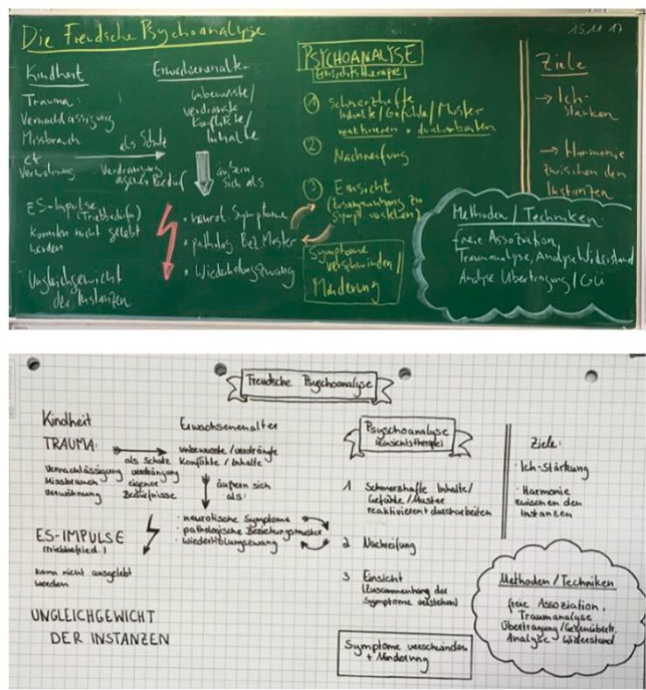 Die Freudsche Psychoanalyse
15.11.17
Kindheit
Trauma:
Vernachlässigung
Missbrauch
Verwöhnung
als Schutz
Verdrängung
ES-Impulse
(Triebbedürfn.)
können nicht gelebt
werden
Ungleichgewicht
der Instanzen
Erwachsenenalter
unbewusste/
verdrängte
Konflikte/
Inhalte
äußern
sich als
• neurot. Symptome
• patholog. Bez.Muster
• Wiederholungszwang
PSYCHOANALYSE
(Einsichtstherapie)
1 Schmerzhafte
Inhalte/Gefühle/Muster
reaktivieren + durcharbeiten
2 Nachreifung
3 Einsicht
(Zusammenhang zu
Sympt. verstehen)
Symptome
verschwinden/
Minderung
Ziele
→ Ich-
stärken
→ Harmonie
zwischen den
Instanzen
Methoden/Techniken:
freie Assoziation,
Traumanalyse, Analyse Widerstand
Analyse Übertragung/GÜ
Freudsche Psychoanalyse
Kindheit
TRAUMA:
Vernachlässigung
Missbrauch
Verwöhnung
als Schutz
verdrängung
eigner
Bedürfnisse
ES-IMPULSE
(triebbefried.)
kann nicht ausgelebt
werden
UNGLEICHGEWICHT
DER INSTANZEN
Erwachsenenalter
unbewusste/verdrängte
Konflikte/Inhalte
äußern sich
als:
· neurotische Symptome
· pathologische Beziehungsmuster
· wiederholungszwang
Psychoanalyse
(Einsichtstherapie)
1 Schmerzhafte Inhalte/
Gefühle/Muster
reaktivieren + durcharbeiten
2 Nachreifung
3 Einsicht
(Zusammenhang der
Symptome verstehen)
Symptome verschwinden
+ Minderung
Ziele:
· Ich-Stärkung
· Harmonie
zwischen den
Instanzen
Methoden/Techniken
freie Assoziation,
Traumanalyse
Übertragung/Gegenübertr.
Analyse Widerstand